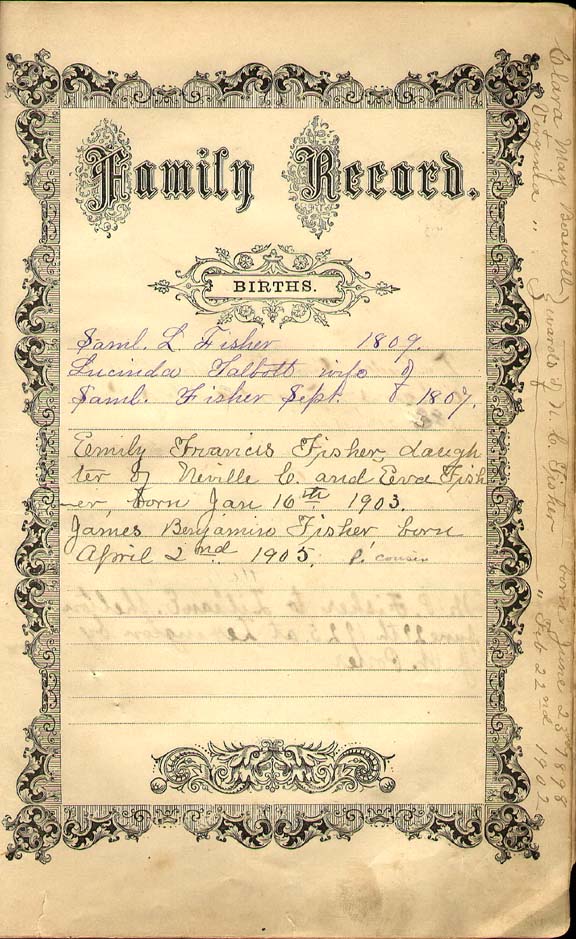 Family Record.
BIRTHS.
Saml. L Fisher 1809.
Lucinda Talbott wife of
Saml. Fisher Sept. 1807.
Emily Francis Fisher, daugh
ter of Neville C. and Eva Fish
er, born Jan 16th 1903.
James Benjamin Fisher born
April 2nd 1905. cousin
Clara May Boswell } wards of N. C. Fisher born June 25 1898
& Virginia " " Feb 22nd 1902